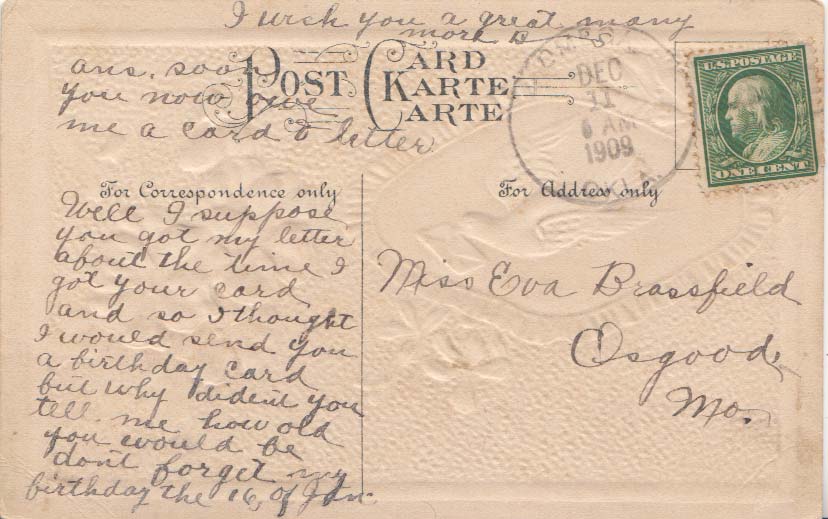 I wish you a great many
more B
ans. soon
you now owe
me a card & letter
POST CARD
KARTE
CARTE
DEC
11
6 AM
1909
OKLA.
U.S. POSTAGE
ONE CENT
For Correspondence only
For Address only
Well I suppose
you got my letter
about the time I
got your card
and so I thought
I would send you
a birthday card
but why dident you
tell me how old
you would be
dont forget my
birthday the 16, of Jan.
Miss Eva Brassfield
Osgood,
Mo.